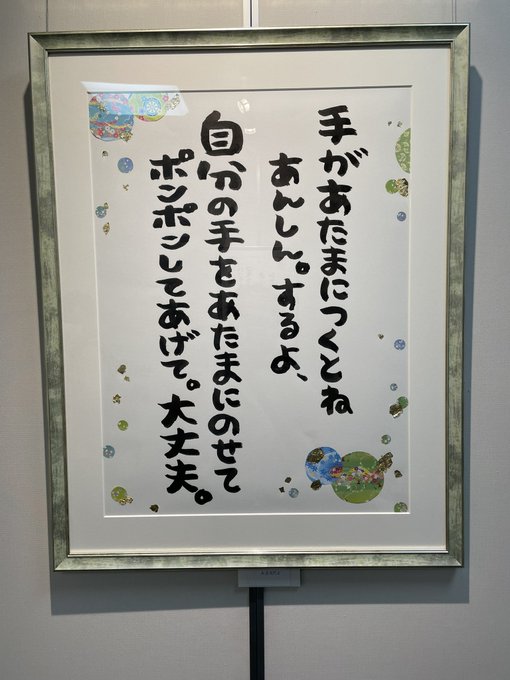 手があたまにつくとね
あんしん。するよ、
自分の手をあたまにのせて
ポンポンしてあげて。大丈夫。